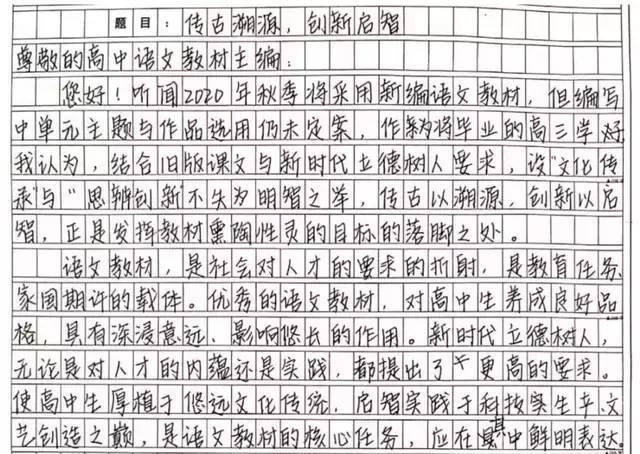 题目：传古溯源，创新启智
尊敬的高中语文教材主编：
您好！听闻2020年秋季将采用新编语文教材，但编写
中单元主题与作品选用仍未定案，作为将毕业的高三学
我认为，结合旧版课文与新时代立德树人要求，设“文化传
录”与“思辨创新”不失为明智之举，传古以溯源，创新以启
智，正是发挥教材熏陶性灵的目标的落脚之处。
语文教材，是社会对人才的要求的折射，是教育任务、
家国期许的载体。优秀的语文教材，对高中生养成良好品
格，具有深浸意远、影响悠长的作用。新时代立德树人，
无论是对人才的内蕴还是实践，都提出了更高的要求。
使高中生厚植于悠远文化传统，启智实践于科技实生产、文
艺创造之巅，是语文教材的核心任务，应在其中鲜明表达。